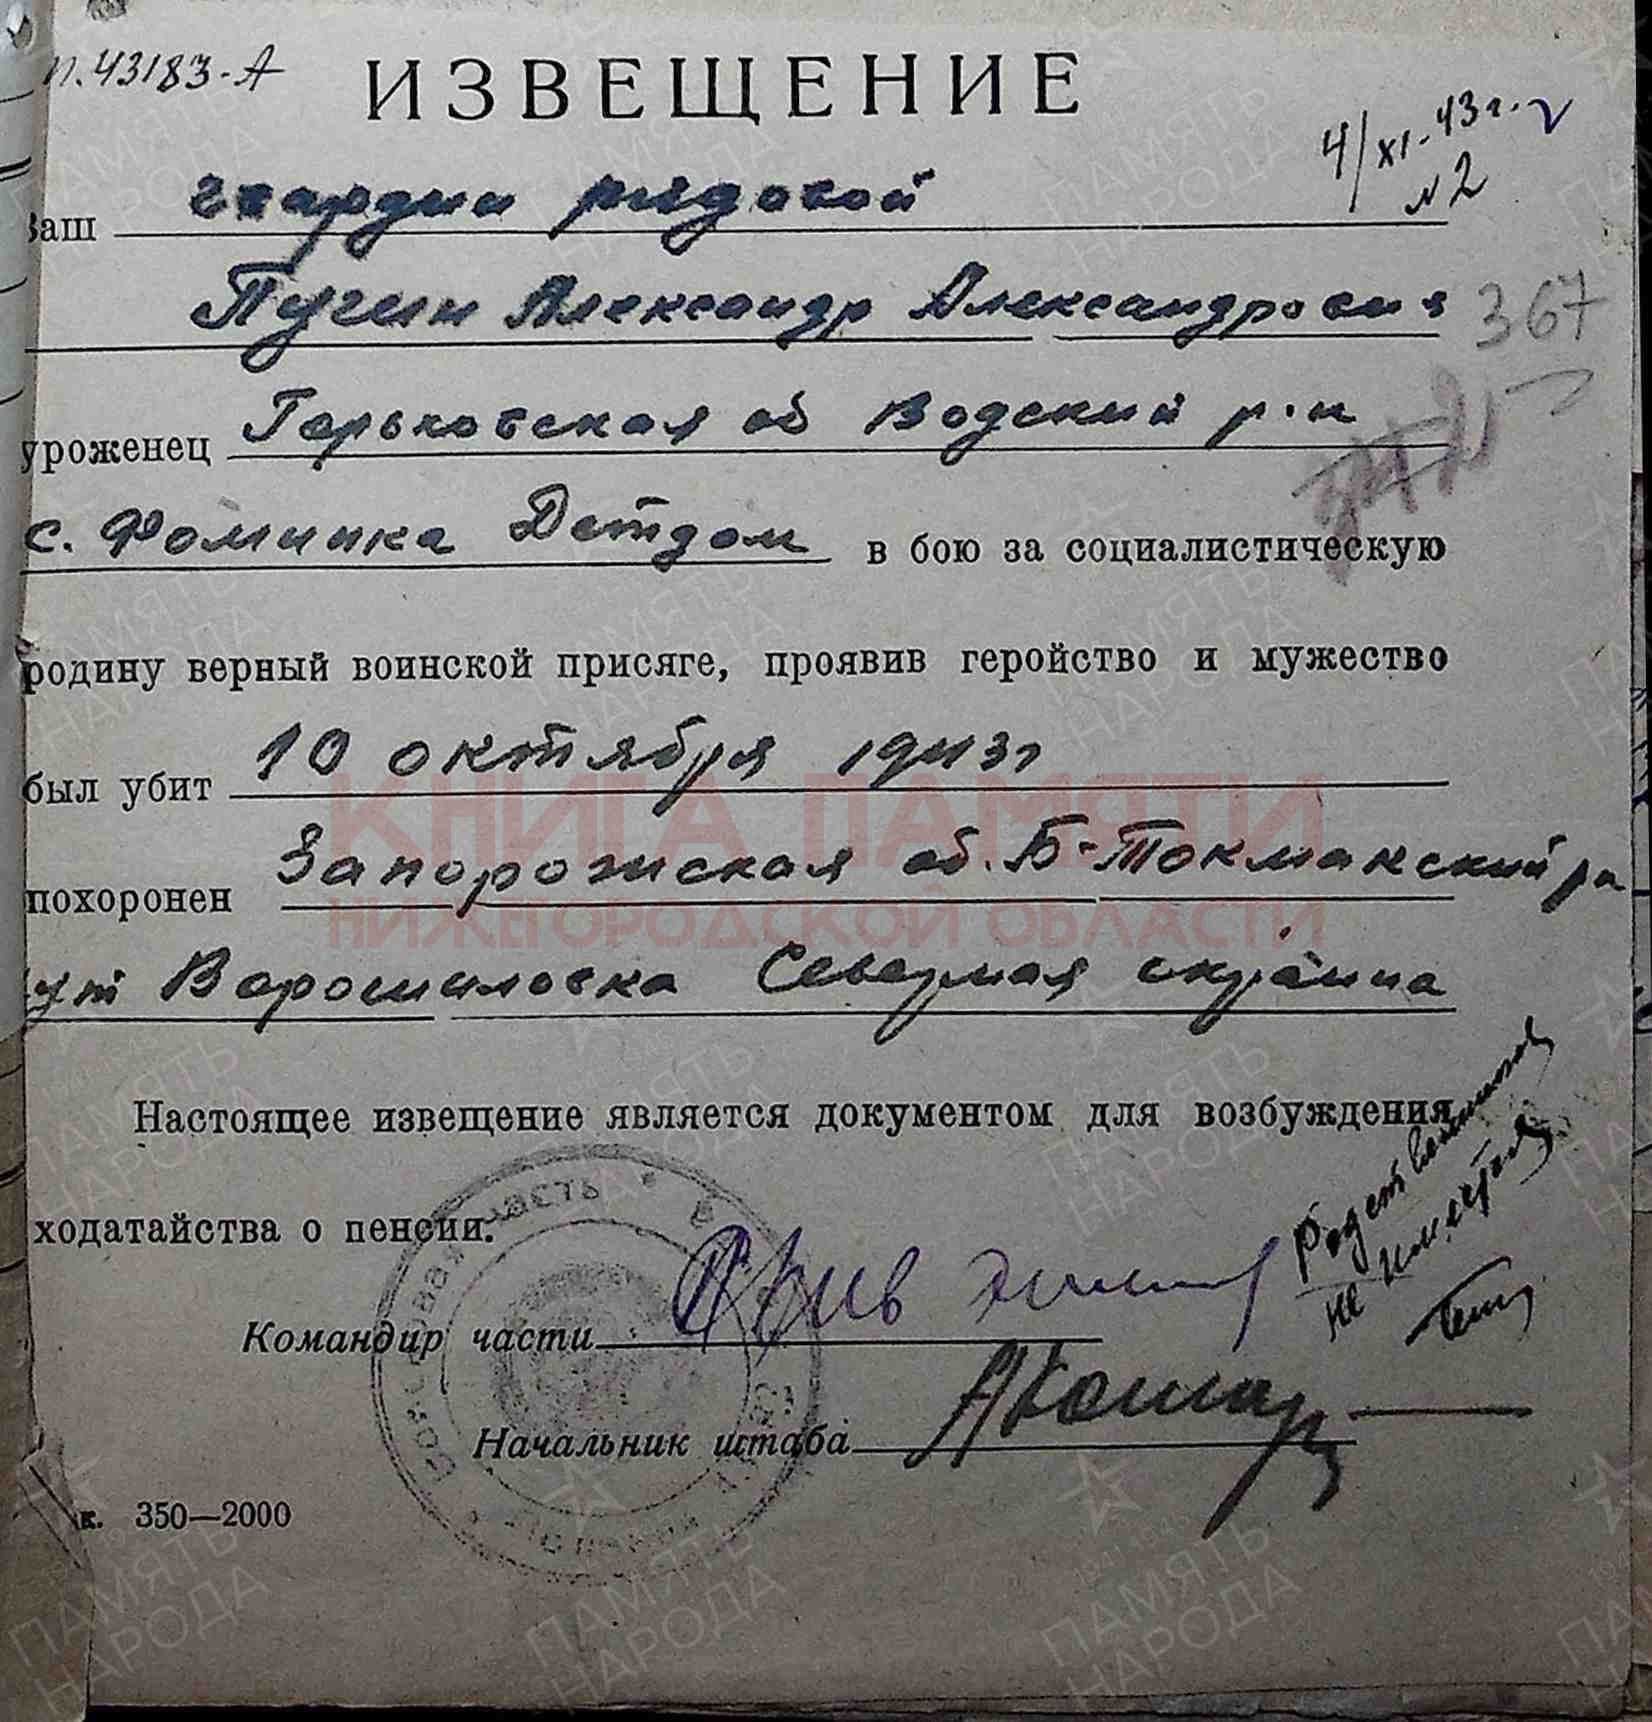 п. 43183-А
ИЗВЕЩЕНИЕ
4/XI-43г.
№ 2
Ваш гвардии рядовой
Пугин Александр Александрович
367
уроженец Горьковская об Водский р-н
с. Фоминка Детдом в бою за социалистическую
родину верный воинской присяге, проявив геройство и мужество
был убит 10 октября 1943г
похоронен Запорожская об. Б-Токмакский рн
Ворошиловка Северная окраина
КНИГА ПАМЯТИ
НИЖЕГОРОДСКОЙ ОБЛАСТИ
Настоящее извещение является документом для возбуждения
ходатайства о пенсии.
Родственников
не
Командир части
Начальник штаба
к. 350—2000
ПАМЯТЬ
НАРОДА